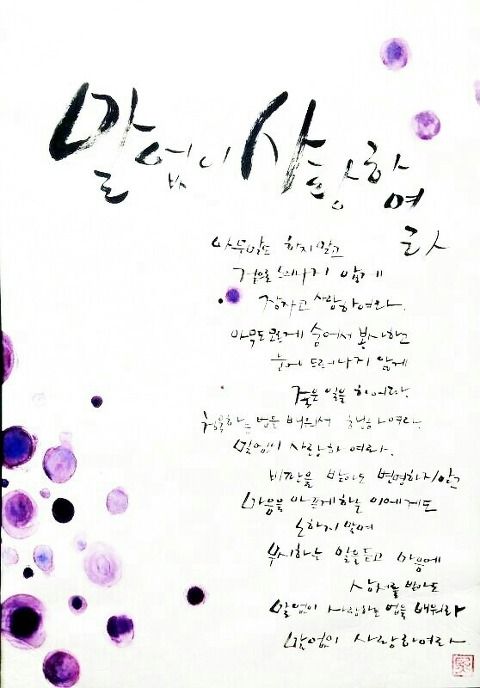 말없이 사랑하여라
아무말도 하지말고
겉으로 드러나지 않게
잠자코 사랑하여라.
아무도 모르게 숨어서 봉사하고
눈에 드러나지 않게
좋은 일을 하여라.
침묵하는 법을 배워서 행하여라.
말없이 사랑하여라.
비판을 받아도 변명하지 말고
마음을 아프게 하는 이에게도
노하지 말며
무시하는 말을 듣고 마음에
상처를 받아도
말없이 사랑하는 법을 배워라
말없이 사랑하여라